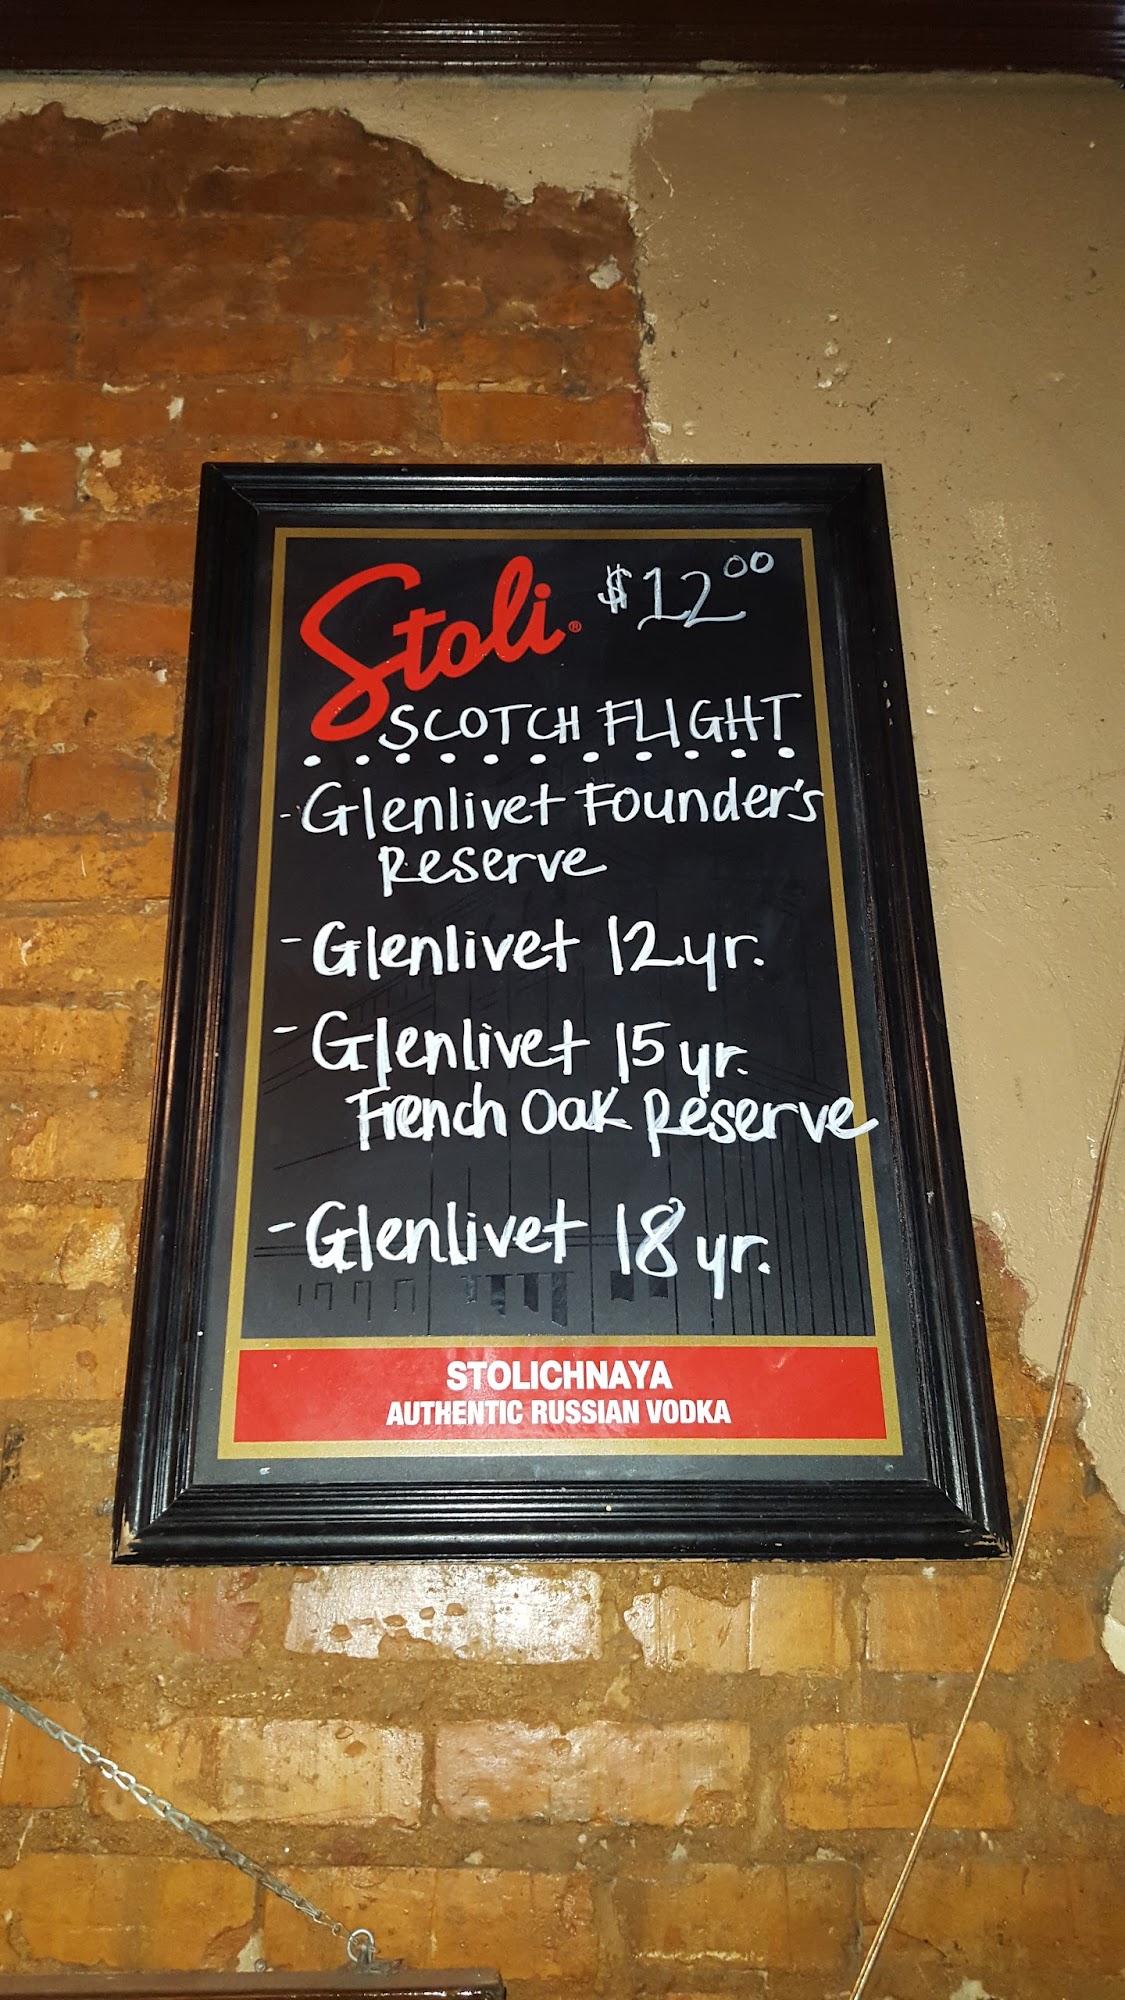 Stoli® $12.00
SCOTCH FLIGHT
- Glenlivet Founder's
Reserve
- Glenlivet 12 yr.
- Glenlivet 15 yr.
French Oak Reserve
- Glenlivet 18 yr.
STOLICHNAYA
AUTHENTIC RUSSIAN VODKA